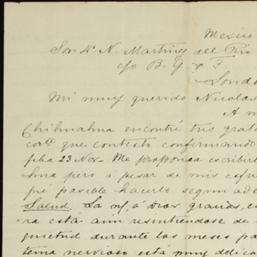 Mexico
Sor Dn N. Martinez del Rio
c/o B. G & F.
London
Mi muy querido Nicolas
A m
Chihuahua encontré tus grat
carta que contesté confirmando
fha 23 Nov. Me proponia escribir
pero á pesar de mis
pé posible hacerlo segun
Salud. La m/ á Dios gracias,
ra está aun resintiendose de
quietud durante los meses pa
tema nervioso está muy delica